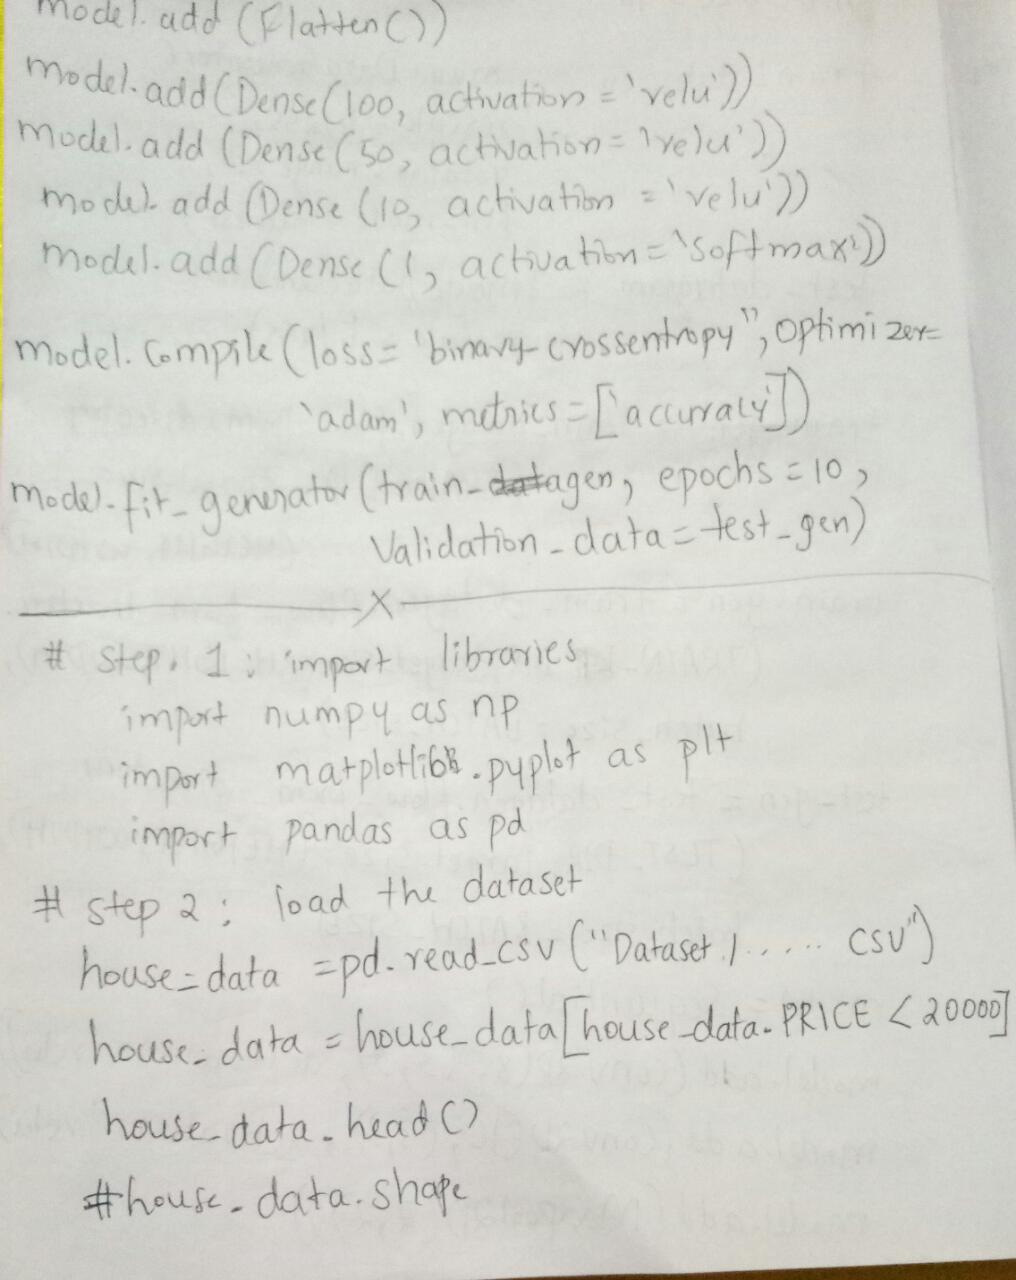 model.add (Flatten())
model.add(Dense(100, activation = 'relu'))
model.add (Dense(50, activation = 'relu'))
model.add (Dense (10, activation = 'relu'))
model.add (Dense (1, activation = 'softmax'))
model.compile (loss = "binary-crossentropy", optimizer=
'adam', metrics = ['accuracy'])
model.fit_generator (train-datagen, epochs = 10,
Validation_data = test_gen)
X
# step. 1 : import libraries
import numpy as np
import matplotlib.pyplot as plt
import pandas as pd
# step 2 : load the dataset
house_data = pd.read_csv ("Dataset/..... csv")
house_data = house_data[house_data.PRICE < 20000]
house_data.head()
#house_data.shape